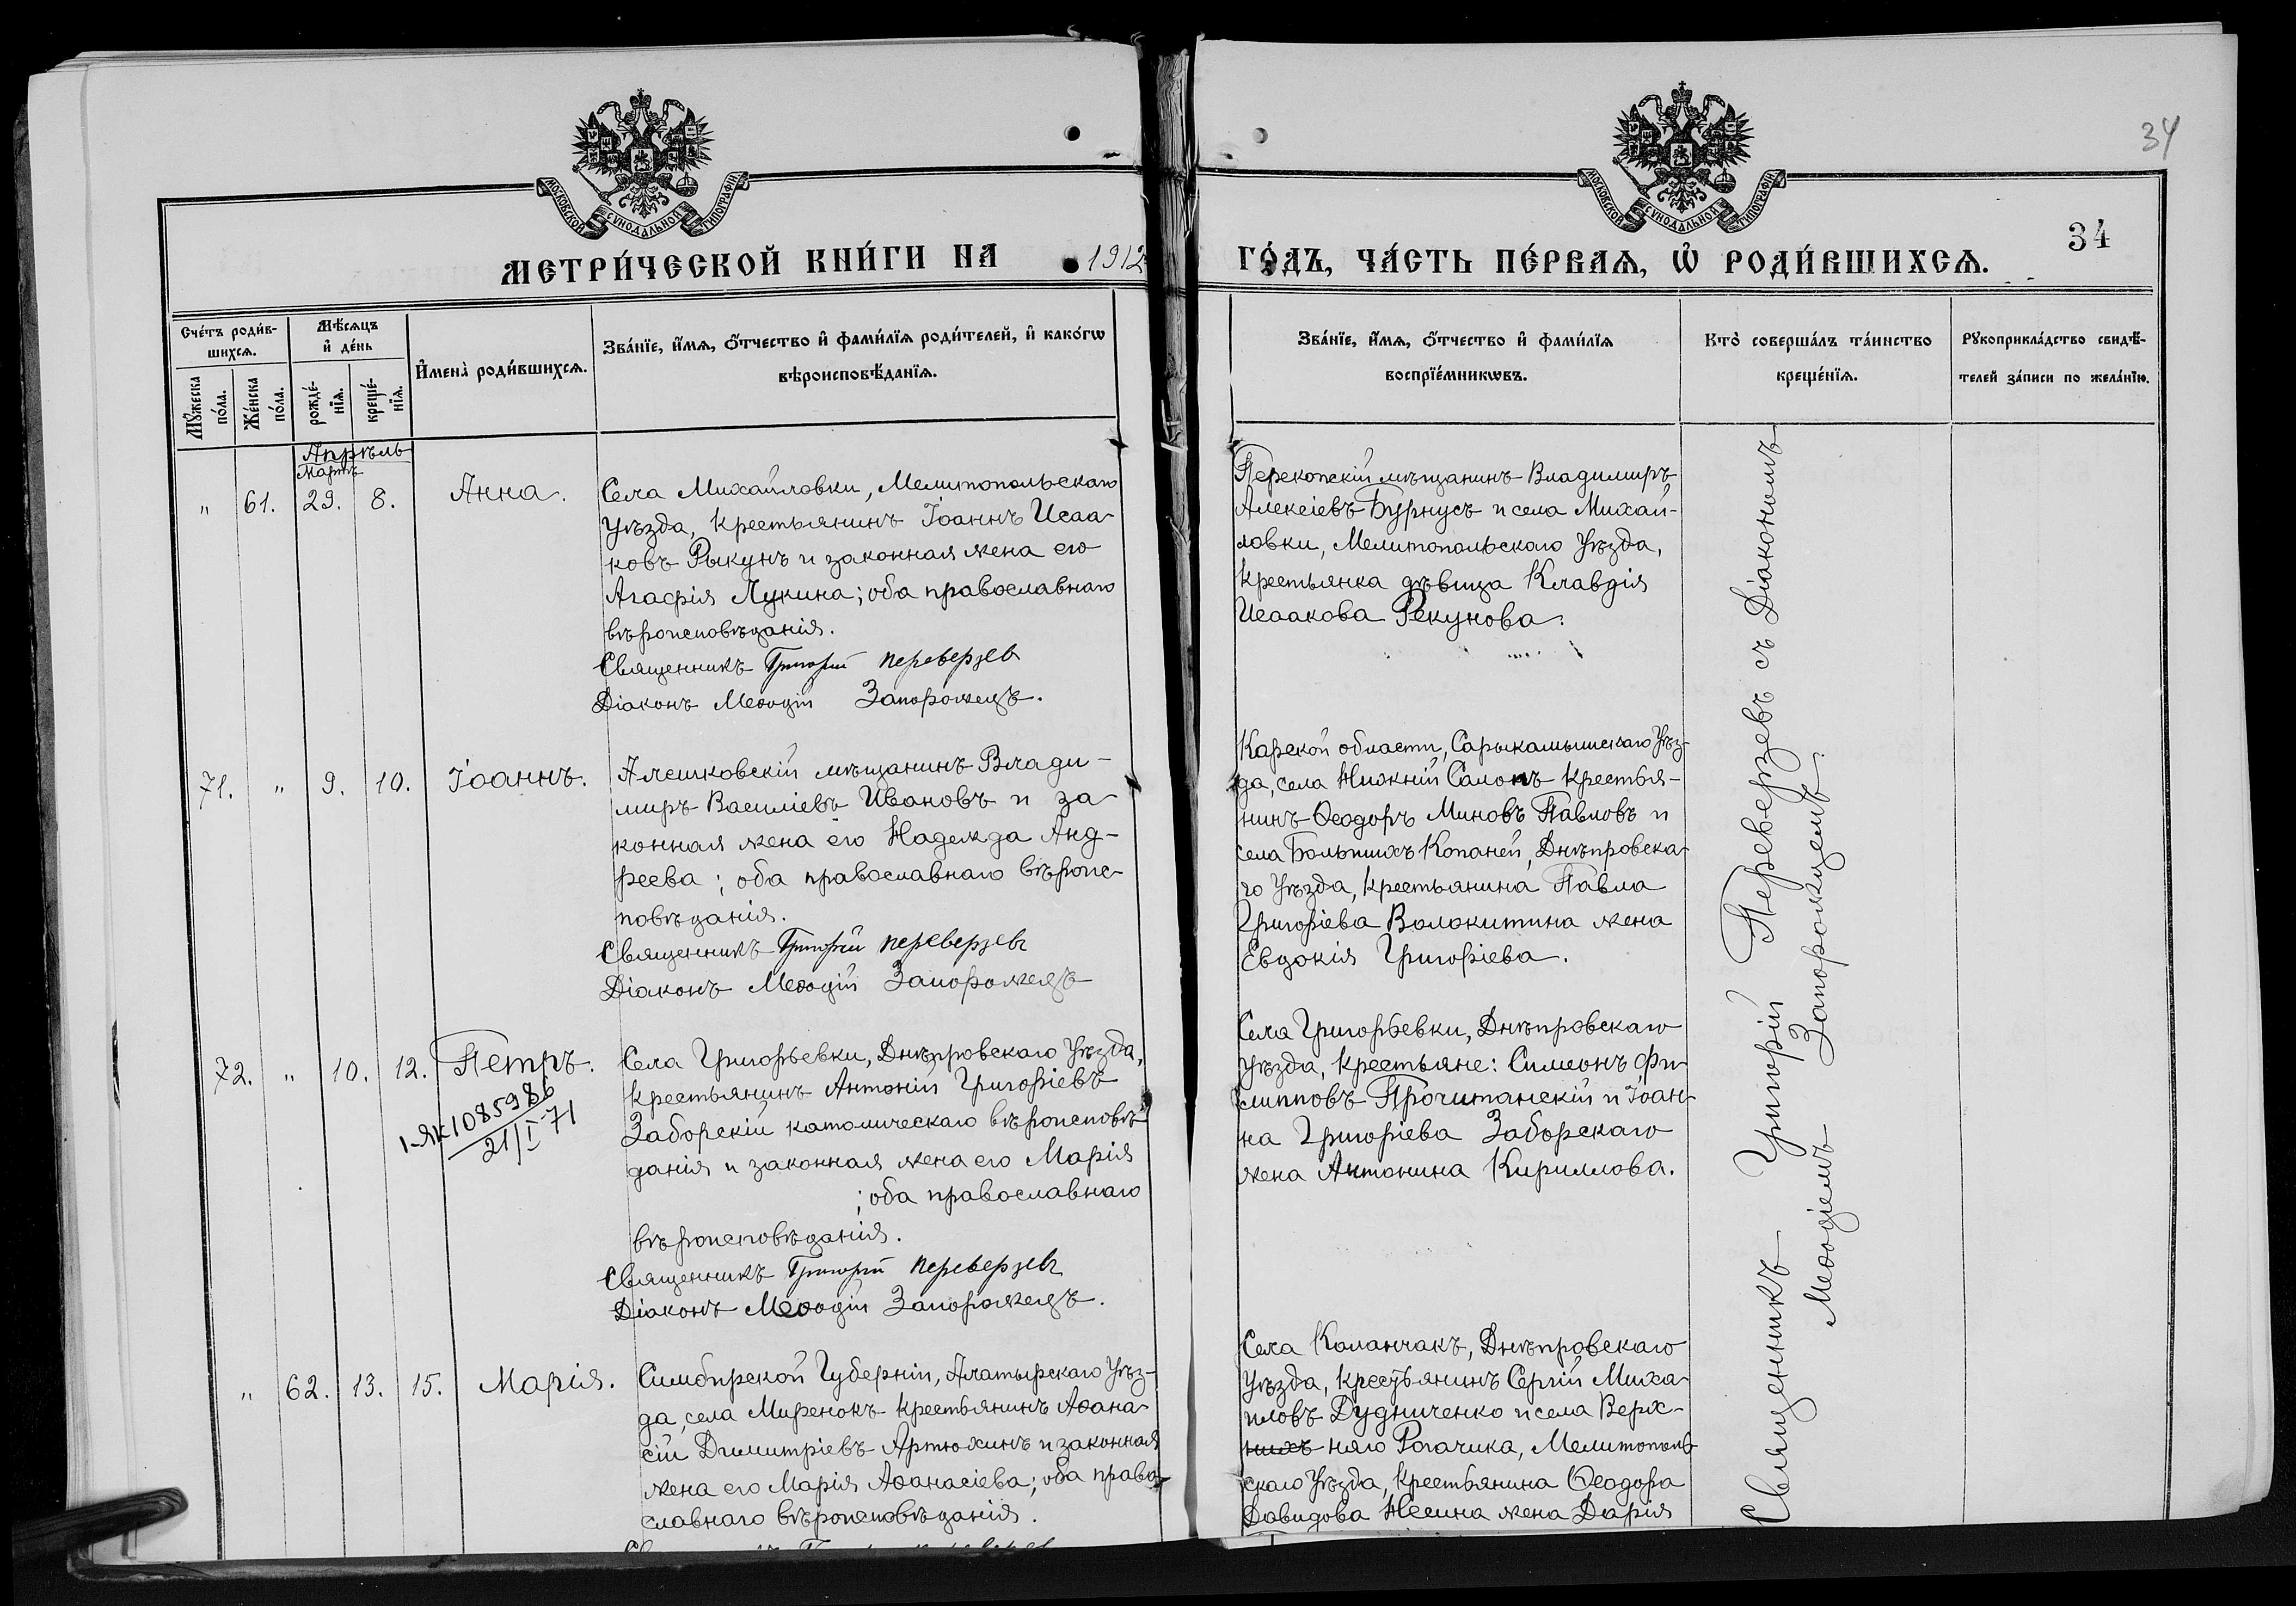 34
МОСКОВСКОЙ СУНОДАЛЬНОЙ ТИПОГРАФІИ
МОСКОВСКОЙ СУНОДАЛЬНОЙ ТИПОГРАФІИ
34
МЕТРИ́ЧЕСКОЙ КНИ́ГИ НА 1912 ГО́ДЪ, ЧА́СТЬ ПЕ́РВАѦ, Ѡ҆ РОДИ́ВШИХСѦ.
Сче́тъ роди́в-
шихсѧ.
Мꙋ́жеска
по́ла.
Же́нска
по́ла.
Мѣ́сѧцъ
и҆ де́нь
рожде́-
нїѧ.
креще́-
нїѧ.
И҆мена̀ роди́вшихсѧ.
Зва́нїе, и҆́мѧ, ѻ҆́тчество и҆ фами́лїѧ роди́телей, и҆ како́гѡ
вѣроисповѣ́данїѧ.
Зва́нїе, и҆́мѧ, ѻ҆́тчество и҆ фами́лїѧ
воспрїе́мникѡвъ.
Кто̀ соверша́лъ та́инство
креще́нїѧ.
Рꙋкоприкла́дство свидѣ́-
телей за́писи по жела́нїю.
Апрѣль
Мартъ
" 61. 29. 8. Анна.
Села Михайловки, Мелитопольскаго
уѣзда, крестьянинъ Іоаннъ Исаа-
ковъ Рыкунъ и законная жена его
Агафія Лукина; оба православнаго
вѣроисповѣданія.
Священникъ Григорій Переверзев
Діаконъ Меѳодій Запорожецъ.
Перекопскій мѣщанинъ Владимиръ
Алексіевъ Бурнусъ и села Михай-
ловки, Мелитопольскаго уѣзда,
крестьянка дѣвица Клавдія
Исаакова Рекунова.
71. " 9. 10. Іоаннъ.
Алешковскій мѣщанинъ Влади-
миръ Василіевъ Ивановъ и за-
конная жена его Надежда Анд-
реева; оба православнаго вѣроис-
повѣданія.
Священникъ Григорій Переверзевъ
Діаконъ Меѳодій Запорожецъ
Карской области, Сарыкамышскаго уѣз-
да, села Нижній Салонъ крестья-
нинъ Ѳеодоръ Миновъ Павловъ и
села Большихъ Копаней, Днѣпровска-
го уѣзда, крестьянина Павла
Григоріева Волокитина жена
Евдокія Григоріева.
72. " 10. 12. Петръ.
1-ЯК 1085986
21/I 71
Села Григорьевки, Днѣпровскаго уѣзда,
крестьянинъ Антоній Григоріевъ
Заборскій католическаго вѣроисповѣ-
данія и законная жена его Марія
; оба православнаго
вѣроисповѣданія.
Священникъ Григорій Переверзевъ
Діаконъ Меѳодій Запорожецъ.
Села Григорьевки, Днѣпровскаго
уѣзда, крестьяне: Симеонъ Фи-
липповъ Прочитанскій и Іоан-
на Григоріева Заборскаго
жена Антонина Кириллова.
" 62. 13. 15. Марія.
Симбирской губерніи, Алатырскаго уѣз-
да, села Миренокъ крестьянинъ Аѳана-
сій Димитріевъ Артюхинъ и законная
жена его Марія Аѳанасіева; оба право-
славнаго вѣроисповѣданія.
Села Каланчакъ, Днѣпровскаго
уѣзда, крестьянинъ Сергій Миха-
иловъ Дудниченко и села Верх-
нихъ няго Рогачика, Мелитополь-
скаго уѣзда, крестьянина Ѳеодора
Давидова Несина жена Дарія
Священникъ Григорій Переверзевъ съ Діакономъ
Меѳодіемъ Запорожцемъ.